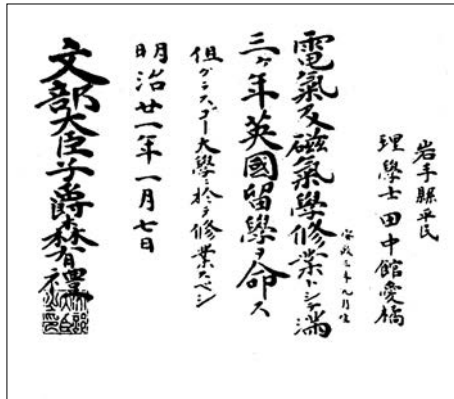 岩手縣平民
理學士 田中館愛橘
安政三年九月生
電氣及磁氣學修業トシテ満
三ケ年英國留學ヲ命ス
但グラスゴー大學ニ於テ修業スベシ
明治廿一年一月七日
文部大臣子爵森有禮